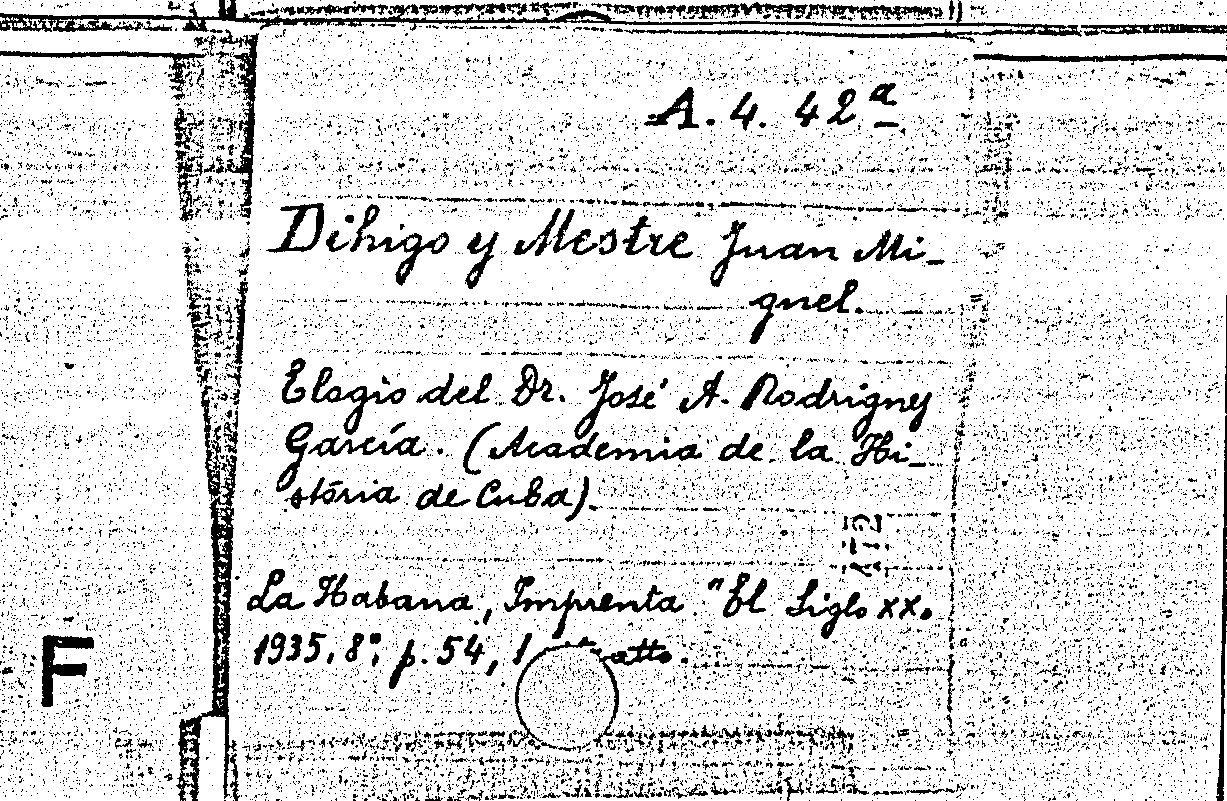 A. 4. 42ª
Dihigo y Mestre Juan Mi-
guel.
Elogio del Dr. José A. Rodriguez
García. (Academia de la Hi-
stória de Cuba).
La Habana, Imprenta "El Siglo XX.
1935. 8º; p. 54, 1
F